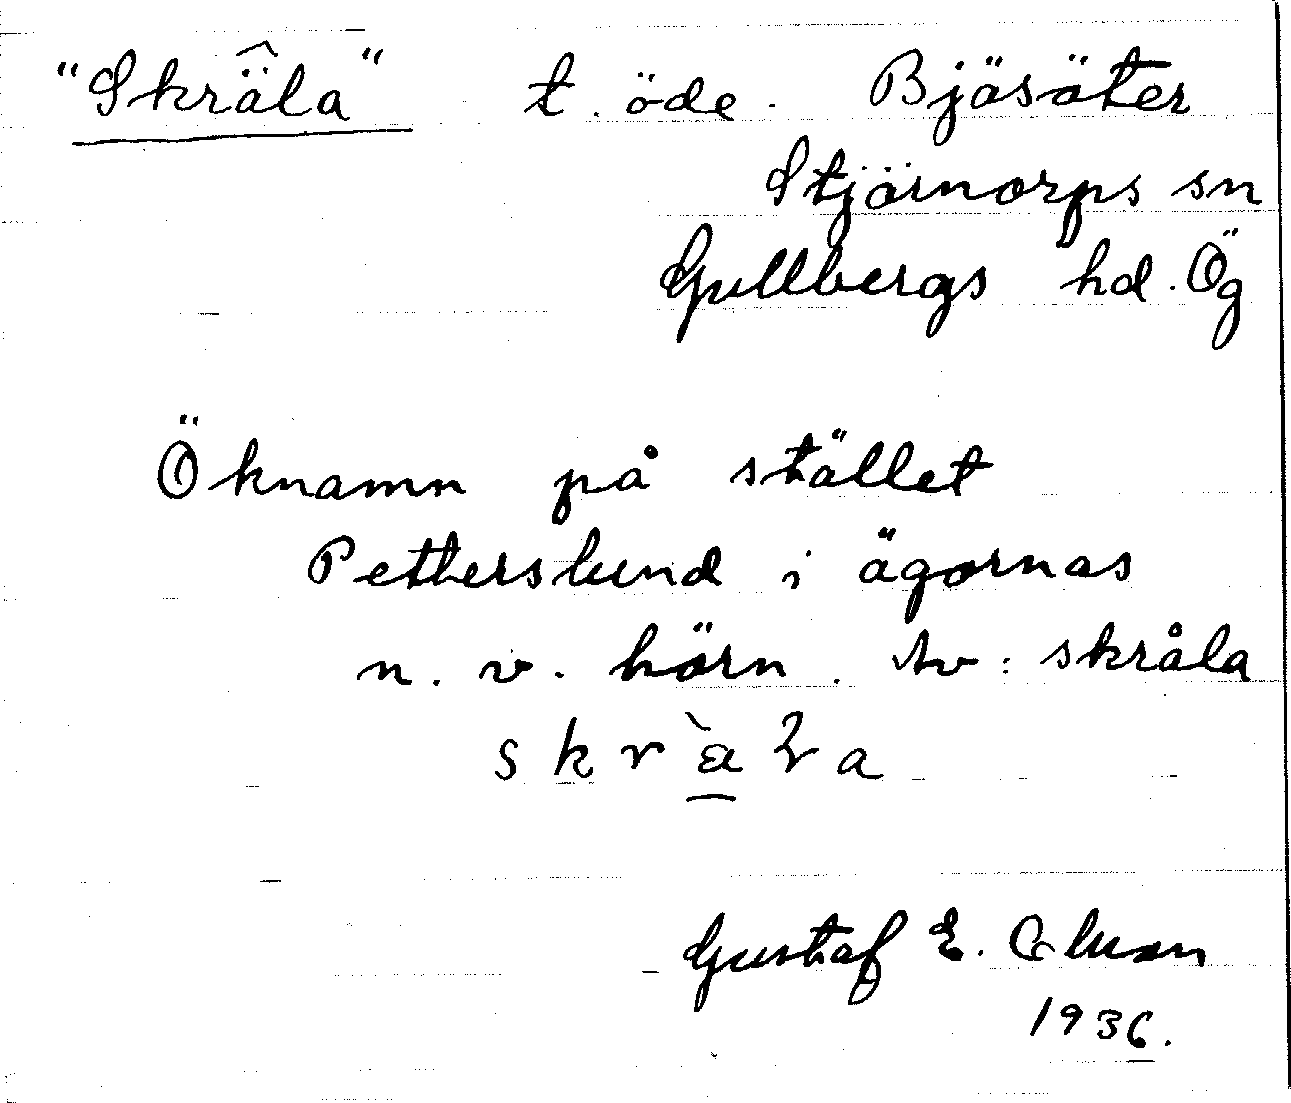 "Skräla" t. öde. Bjäsäter
Stjärnorps sn
Gullbergs hd. Ög
Öknamn på stället
Petterslund i ägornas
n. v. hörn. Av: skråla
Gustaf E.
1936.